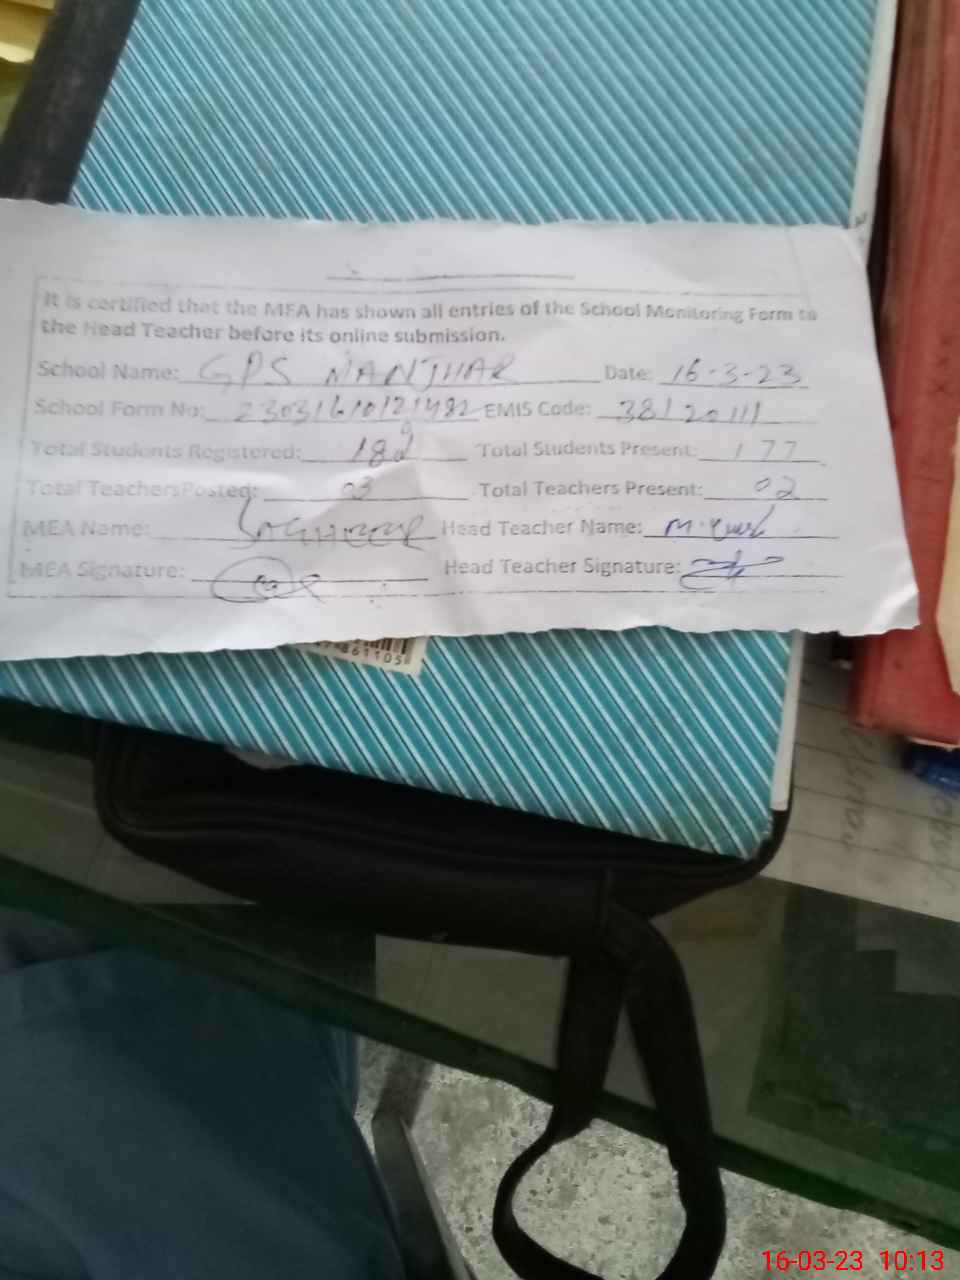 It is certified that the MEA has shown all entries of the School Monitoring Form to
the Head Teacher before its online submission.
School Name: GPS MANJHAR Date: 16-3-23
School Form No: EMIS Code: 38120111
Total Students Registered: Total Students Present: 177
Total Teachers Posted: 03 Total Teachers Present: 02
MEA Name: SAGHEER Head Teacher Name: M.
MEA Signature: Head Teacher Signature:
861105
16-03-23 10:13